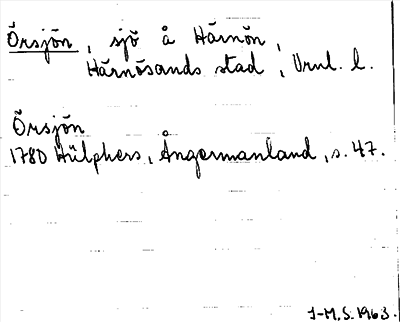 Örsjön, sjö å Härnön,
Härnösands stad, Vrnl. l.
Örsjön
1780 Hülphers, Ångermanland, s. 47.
J-M.S. 1963.